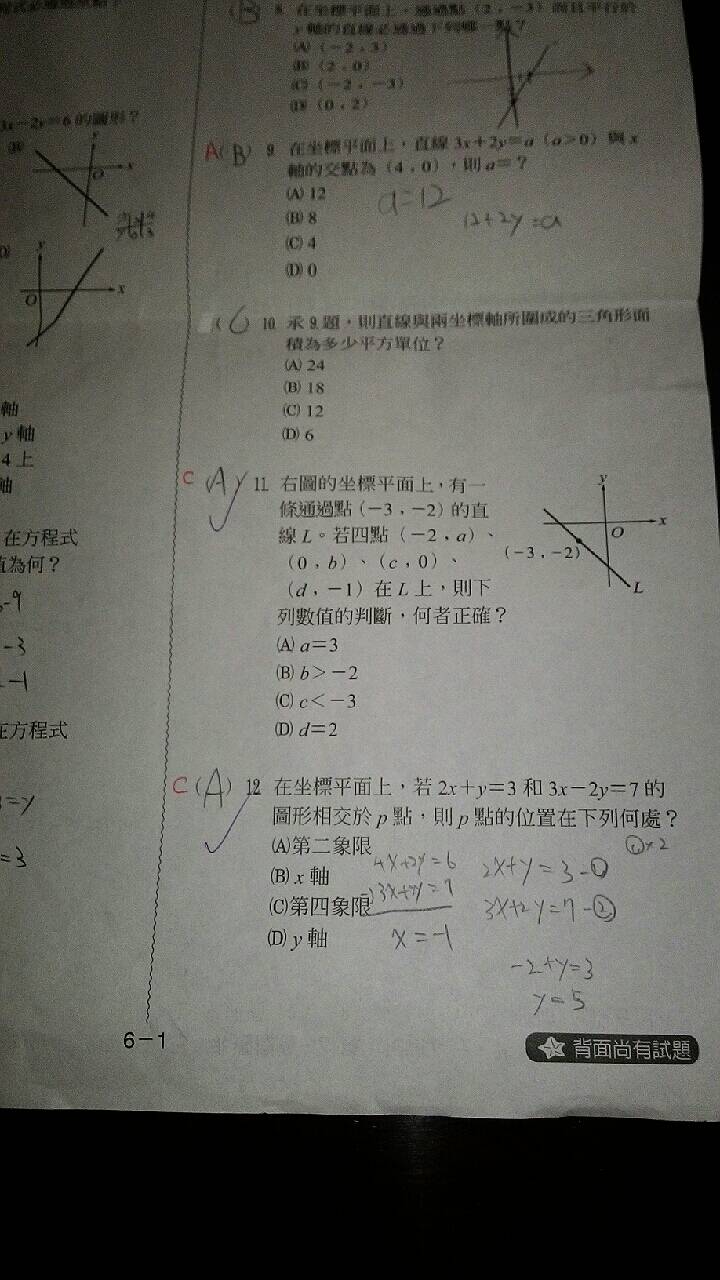 3x－2y＝6 的圖形？
y
O
x
y
O
x
軸
y 軸
4 上
軸
在方程式
值為何？
-9
-3
-1
在方程式
=y
=3
(B) 8. 在坐標平面上，通過點（2，－3）而且平行於
y 軸的直線必通過下列哪一點？
(A)（－2，3）
(B)（2，0）
(C)（－2，－3）
(D)（0，2）
A (B) 9. 在坐標平面上，直線 3x＋2y＝a（a＞0）與 x
軸的交點為（4，0），則 a＝？
(A) 12
(B) 8
(C) 4
(D) 0
a=12
12+2y=a
(C) 10. 承 9.題，則直線與兩坐標軸所圍成的三角形面
積為多少平方單位？
(A) 24
(B) 18
(C) 12
(D) 6
C (A) 11. 右圖的坐標平面上，有一
條通過點（－3，－2）的直
線 L。若四點（－2，a）、
（0，b）、（c，0）、
（d，－1）在 L 上，則下
列數值的判斷，何者正確？
(A) a＝3
(B) b＞－2
(C) c＜－3
(D) d＝2
y
x
O
（－3，－2）
L
C (A) 12. 在坐標平面上，若 2x＋y＝3 和 3x－2y＝7 的
圖形相交於 p 點，則 p 點的位置在下列何處？
(A)第二象限
(B) x 軸
(C)第四象限
(D) y 軸
①×2
4x+2y=6
x=-1
2x+y=3-①
3x+2y=7-②
-2+y=3
y=5
6－1
背面尚有試題